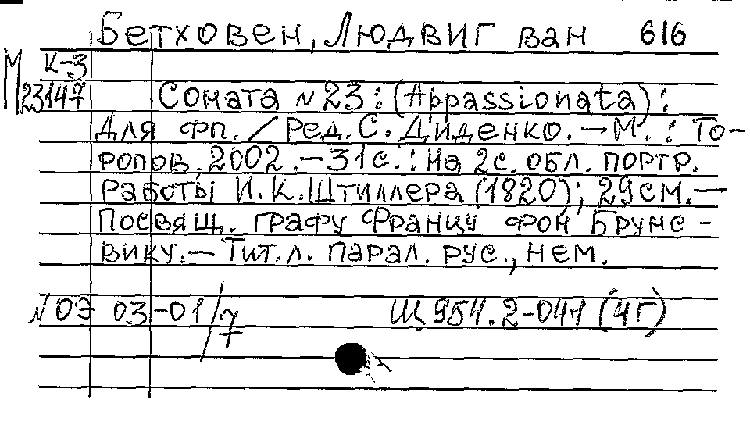 Бетховен, Людвиг ван 616
М к-3
23147 Соната N 23 : (Appassionata) :
для фп. / Ред. С. Диденко. — М. : То-
ропов, 2002. — 31 с. : На 2 с. обл. портр.
работы И. К. Штиллера (1820) ; 29 см. —
Посвящ. графу Францу фон Брунс-
вику. — Тит. л. парал. рус., нем.
N 03-01/7 Щ 954.2-041 (4Г)